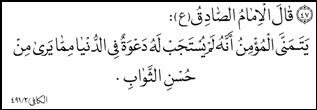 ٤٧ قَالَ الْإِمَامُ الصَّادِقُ (ع):
يَتَمَنَّى الْمُؤْمِنُ أَنَّهُ لَمْ يُسْتَجَبْ لَهُ دَعْوَةٌ فِي الدُّنْيَا مِمَّا يَرَىٰ مِنْ
حُسْنِ الثَّوَابِ .
الكافي ٤٩١/٢